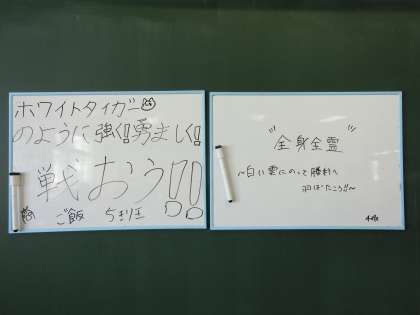 ホワイトタイガー
のように強く!勇ましく!!
戦おう!!
ご飯
"全身全霊"
~白い雲にのって勝利へ
羽ばたこう!!~